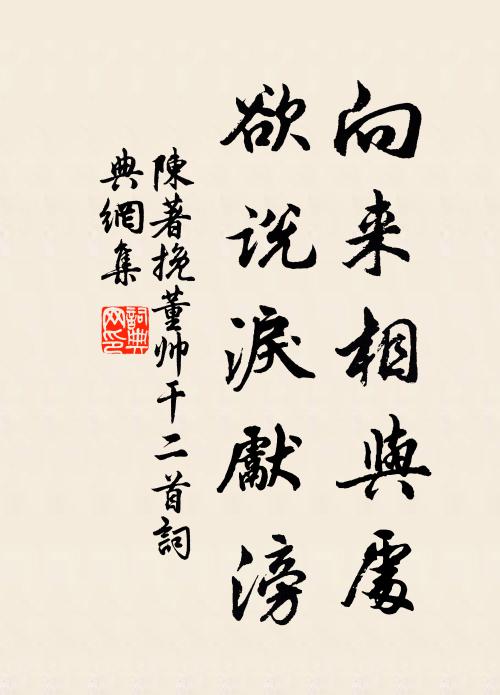 向来相與處
欲说淚獻滂
陳著挽董帅干二首詞
典網集
詞典
网印